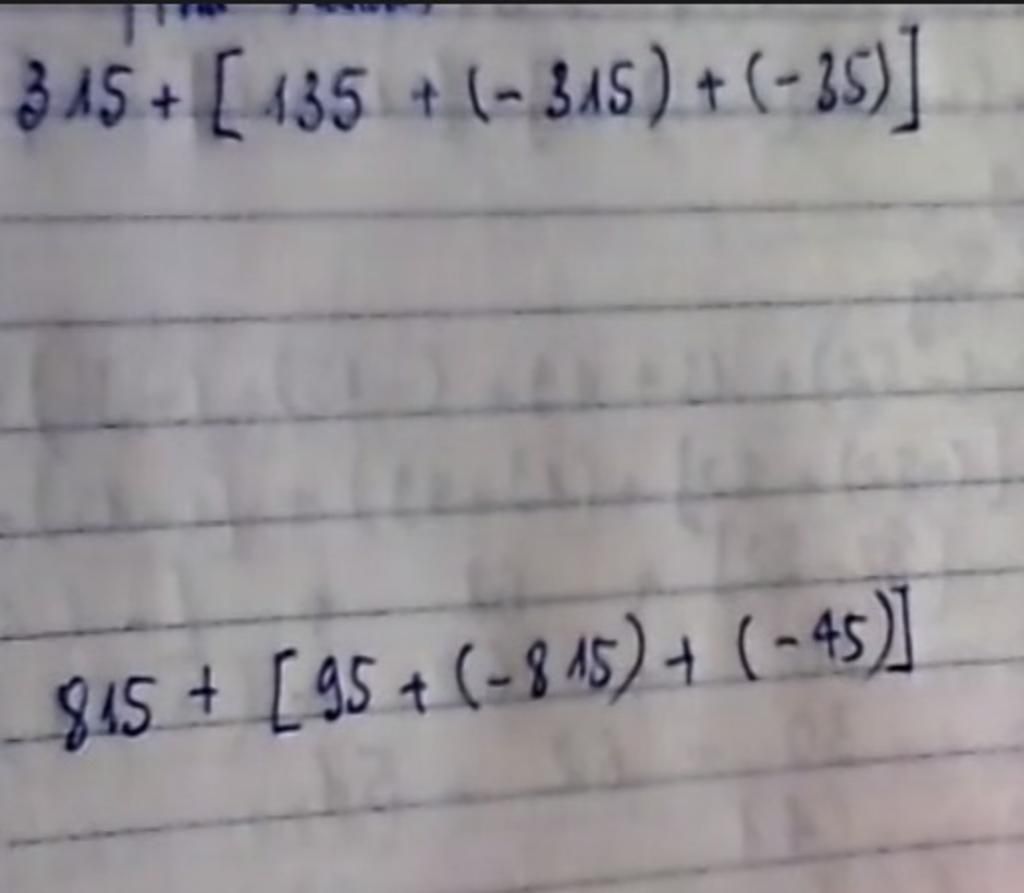 315 + [ 135 + (- 315) + (- 35)]
815 + [ 95 + (- 815) + (- 45)]